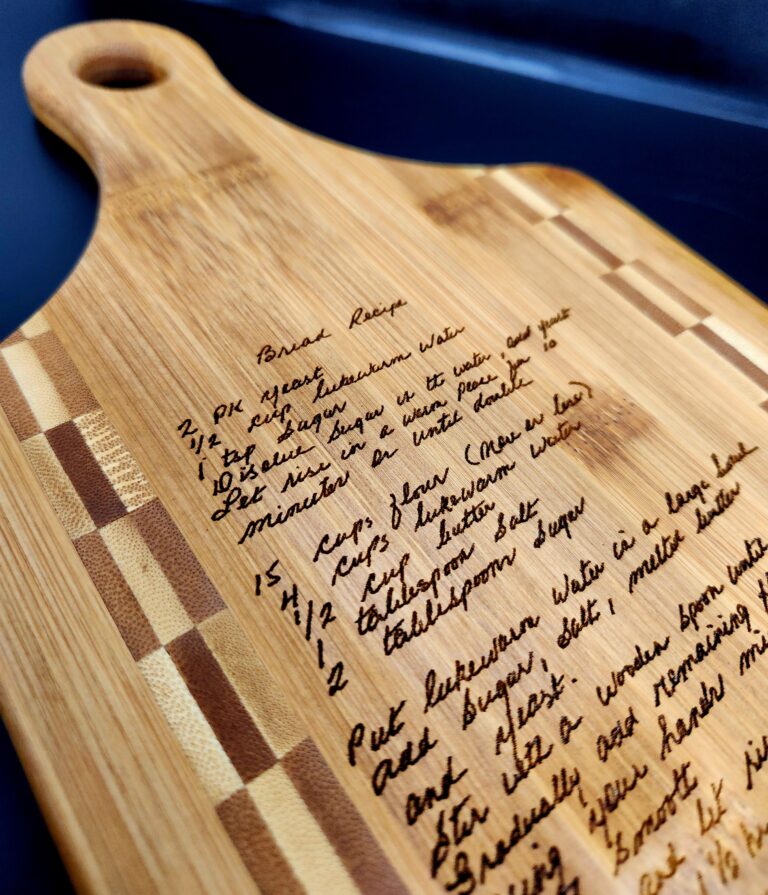 Bread Recipe
2 pk yeast
1/2 cup lukewarm water
1 tsp sugar
Disolve sugar in the water, add yeast
Let rise in a warm place for 10
minutes or until double
15 cups flour (more or less)
4 cups lukewarm water
1/2 cup butter
1 tablespoon salt
2 tablespoons sugar
Put lukewarm water in a large bowl
add sugar, salt, melted butter
and yeast.
Stir with a wooden spoon until
Gradually add remaining
using your hands
smooth
and let
1 1/2